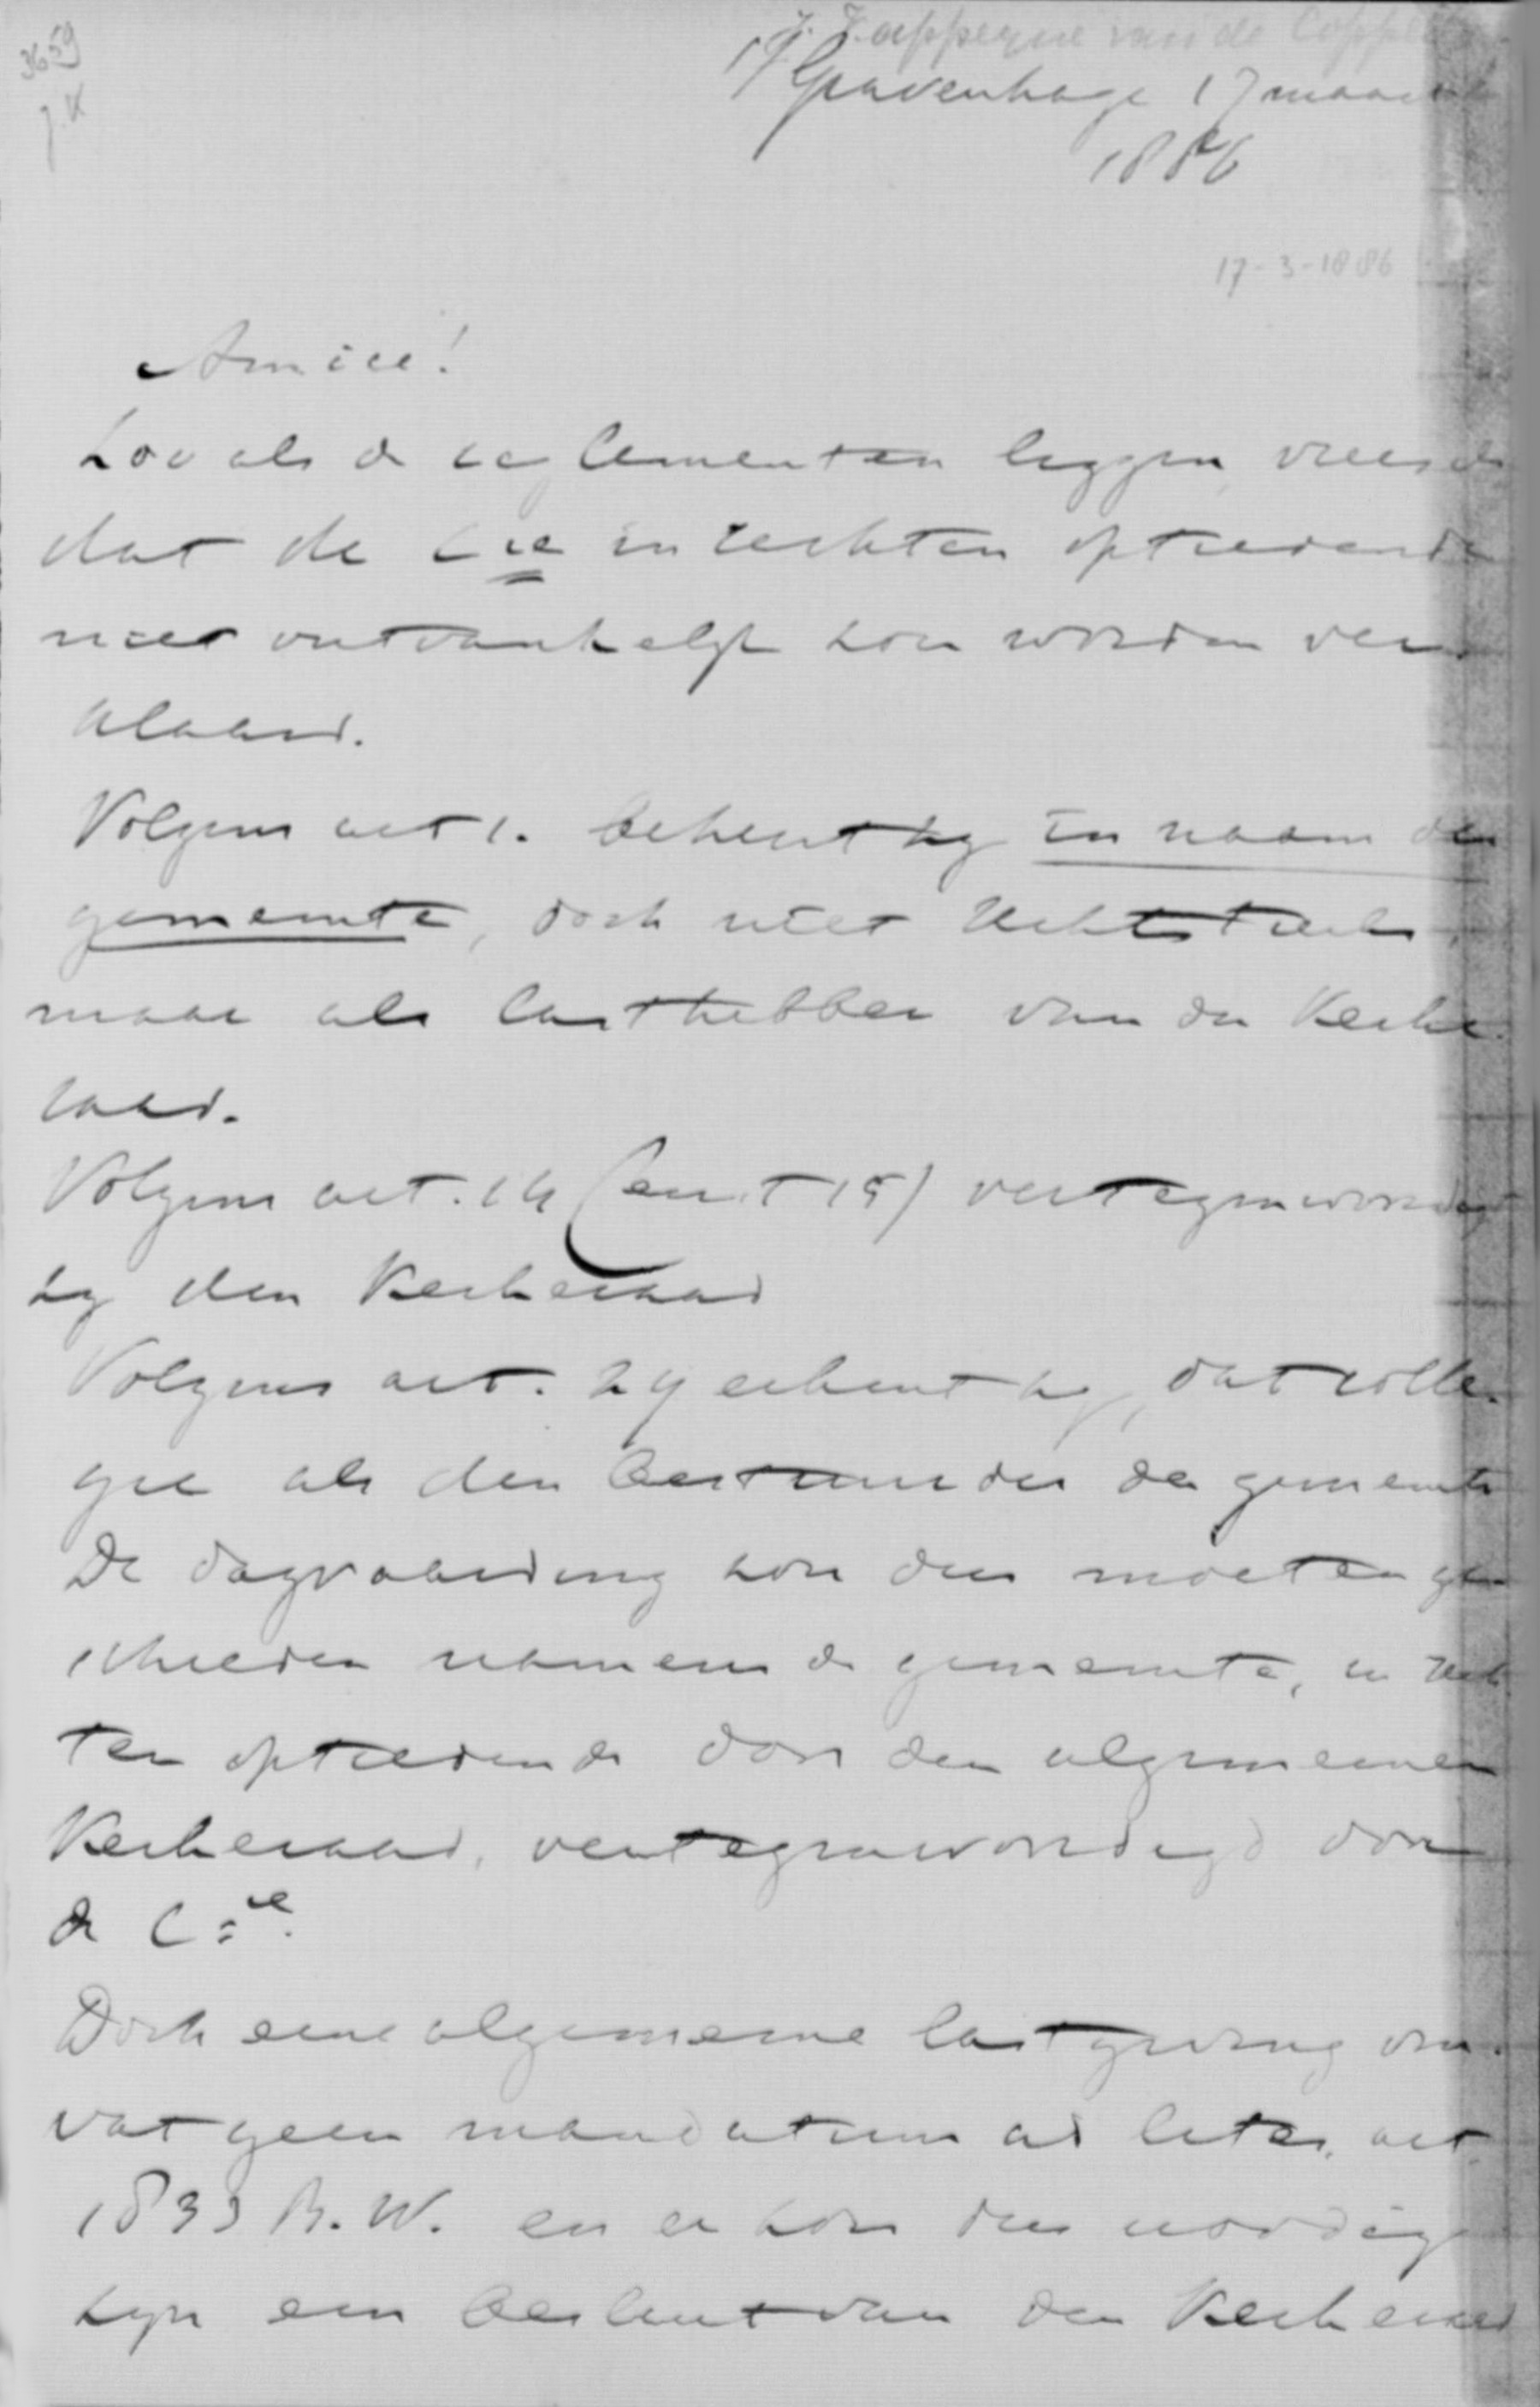 3659
J. Kappeyne van de Coppello
's Gravenhage 17 maart
1886
17-3-1886
Amice!
Zooals de reglementen liggen, vrees ik
dat de Cie in rechten optredende
niet ontvankelijk zou worden ver
klaard.
Volgens art 1. beheert zij in naam der
gemeente, doch niet rechtstreeks,
maar als lasthebber van den Kerke
raad.
Volgens art. 14 (en 15) vertegenwoordigt
zij den Kerkeraad
Volgens art. 24 erkent zij, dat colle
gie als den bestuurder der gemeente
De dagvaarding zou dus moeten ge
schieden namens de gemeente, in rech
ten optredende door den algemeenen
Kerkeraad, vertegenwoordigd door
de Cie.
Doch eene algemeene lastgeving om
vat geen mandatum ad lites, art.
1833 B.W. en er zou dus noodig
zijn een besluit van den Kerkeraad